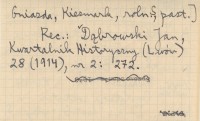 Gniazda, Kiesmark, roln. i past.]
Rec.: Dąbrowski Jan,
Kwartalnik Historyczny (Lwów)
28 (1914), nr 2: 272.